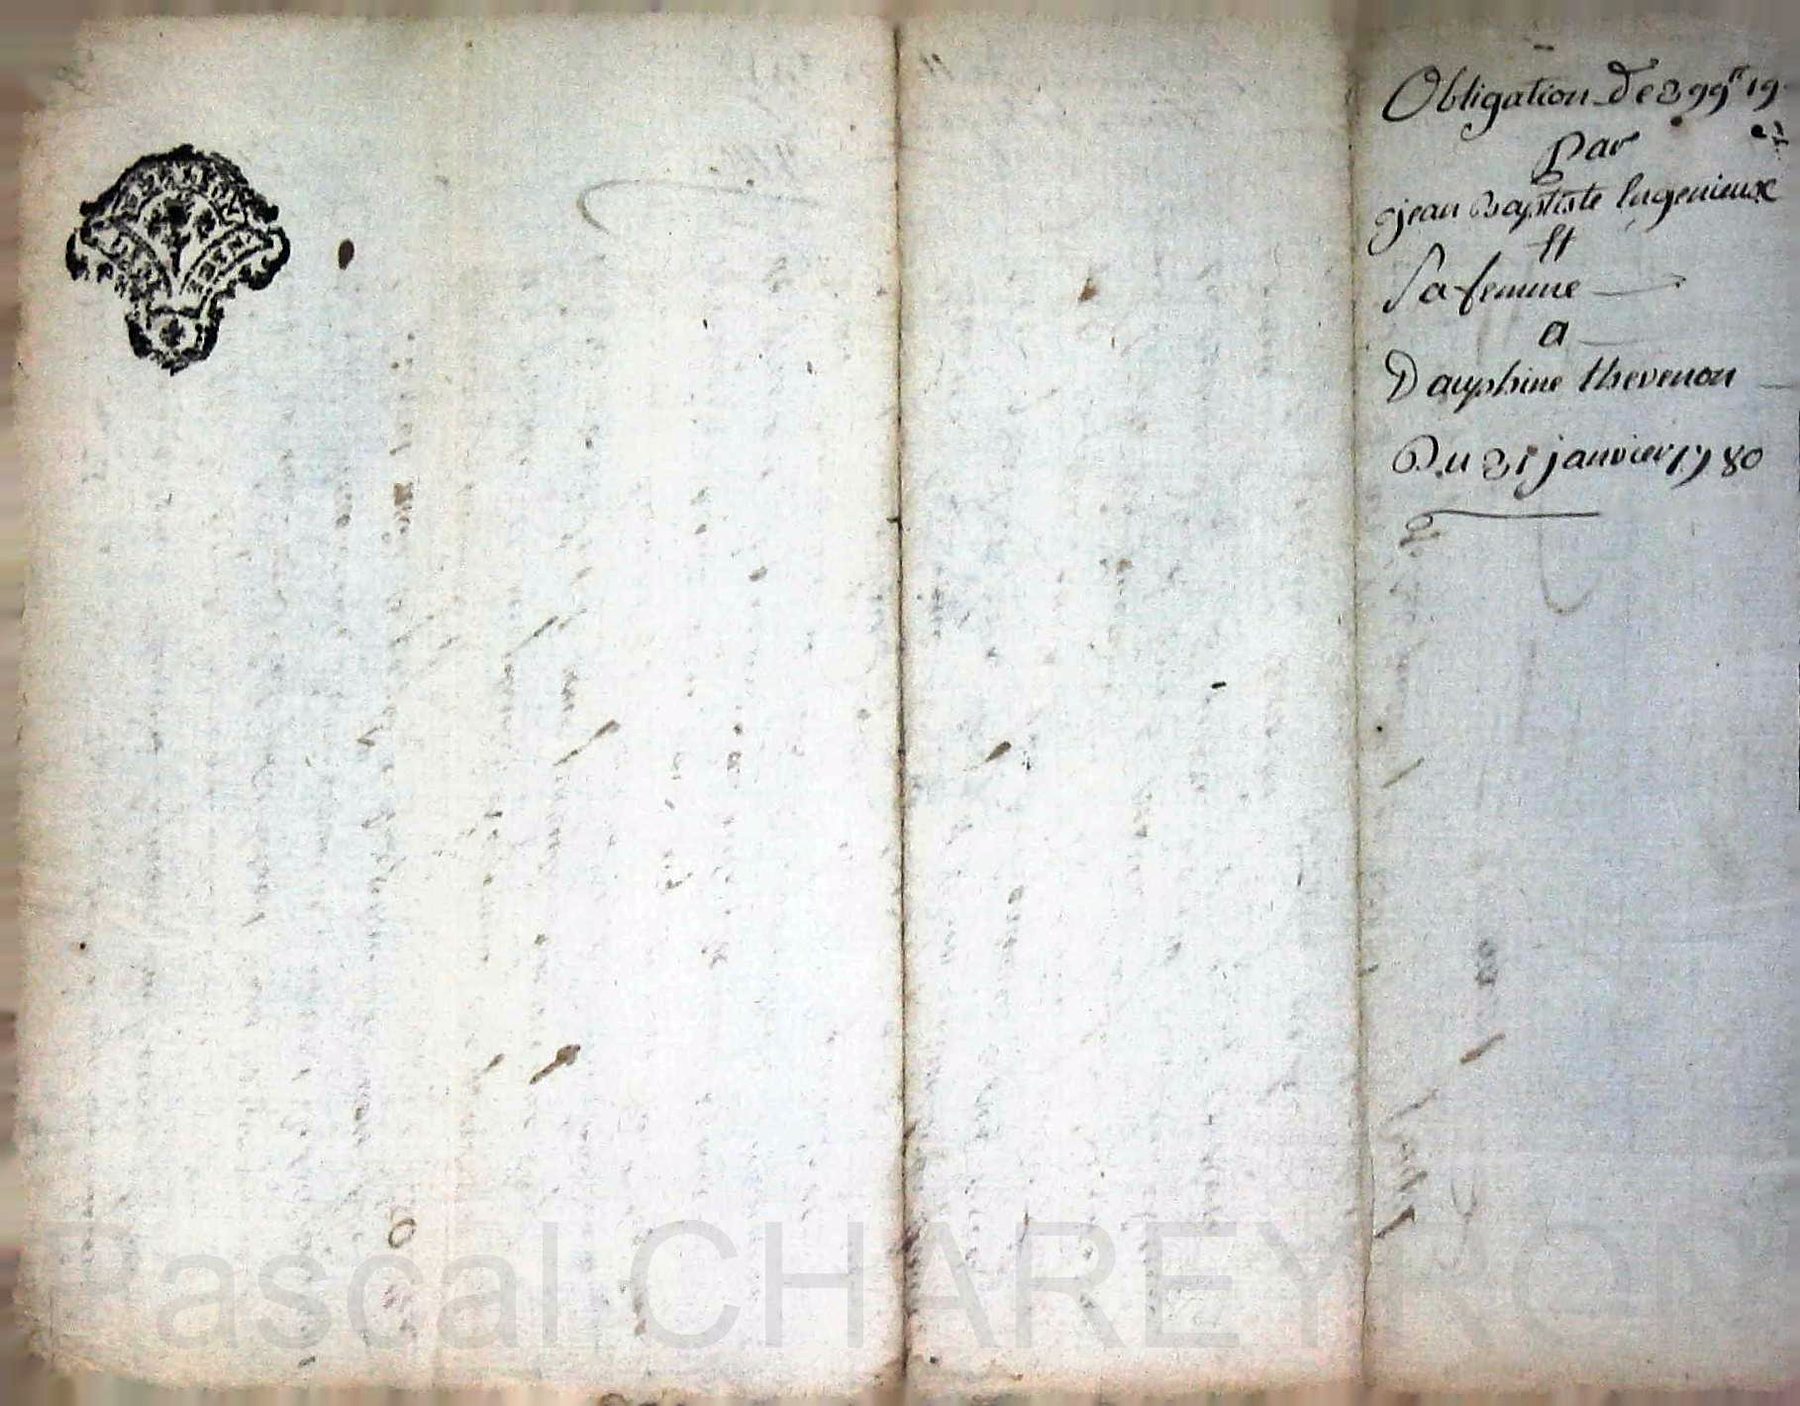 Obligation de 399ᵗᵗ 19
Par
jean Baptiste Ingenieux
Et
Sa femme
a
Dauphine thevenon
Du 31 janvier 1780
Pascal CHAREYRON